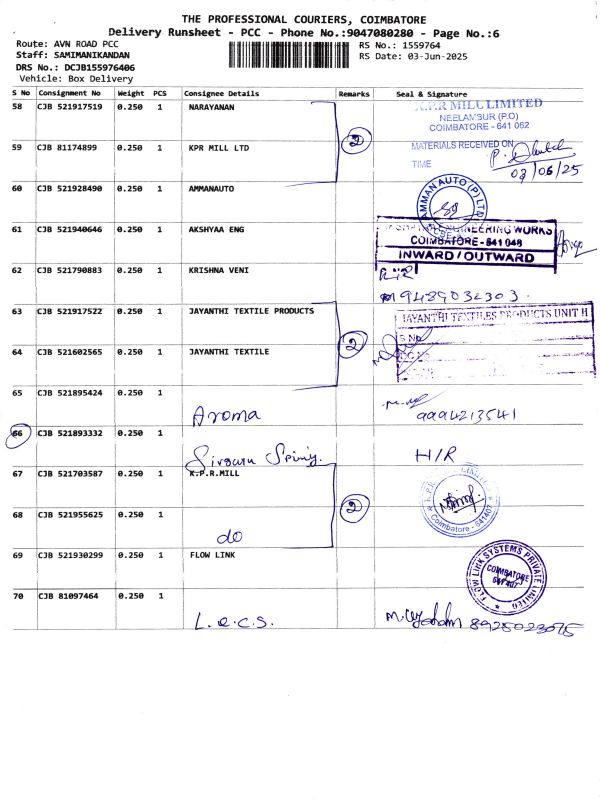 THE PROFESSIONAL COURIERS, COIMBATORE
Delivery Runsheet - PCC - Phone No.:9047080280 - Page No.:6
Route: AVN ROAD PCC
Staff: SAMIMANIKANDAN
DRS No.: DCJB155976406
Vehicle: Box Delivery
RS No.: 1559764
RS Date: 03-Jun-2025
S No Consignment No Weight PCS Consignee Details Remarks Seal & Signature
58 CJB 521917519 0.250 1 NARAYANAN K.P.R MILL LIMITED
NEELAMBUR (P.O)
COIMBATORE - 641 062
2
59 CJB 81174899 0.250 1 KPR MILL LTD MATERIALS RECEIVED ON
TIME
03/06/25
60 CJB 521928490 0.250 1 AMMANAUTO AMMAN AUTO (P) LTD
61 CJB 521940646 0.250 1 AKSHYAA ENG ENGINEERING WORKS
COIMBATORE - 641 048
INWARD / OUTWARD
62 CJB 521790883 0.250 1 KRISHNA VENI
9489032303
63 CJB 521917522 0.250 1 JAYANTHI TEXTILE PRODUCTS JAYANTHI TEXTILES PRODUCTS UNIT II
S.No
2
64 CJB 521602565 0.250 1 JAYANTHI TEXTILE
65 CJB 521895424 0.250 1
Aroma 9994213541
66 CJB 521893332 0.250 1
H/R
67 CJB 521703587 0.250 1 K.P.R.MILL K.P.R. MILL LIMITED
Coimbatore - 641407
2
68 CJB 521955625 0.250 1
do
69 CJB 521930299 0.250 1 FLOW LINK FLOW LINK SYSTEMS PRIVATE LIMITED
COIMBATORE
641 407
70 CJB 81097464 0.250 1
L.e.c.s.